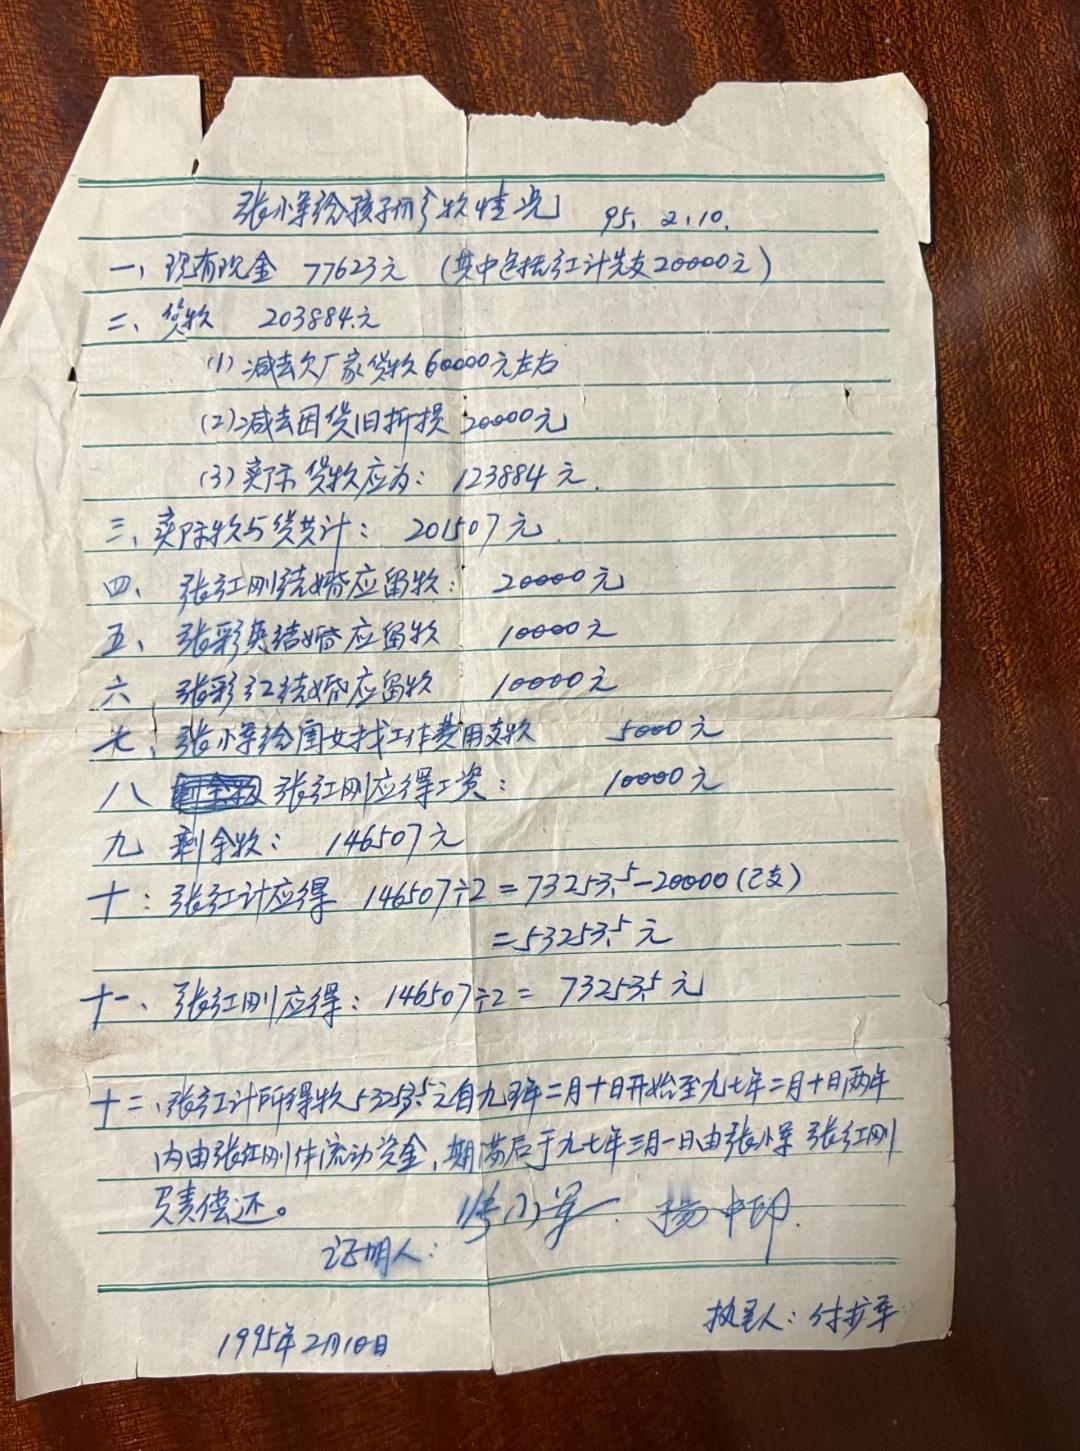 张小军给孩子们分款情况 95.2.10.
一、现有现金 77623元 (其中包括红计先支20000元)
二、货款 203884元
(1)减去欠厂家货款60000元左右
(2)减去因货旧折损20000元
(3)实际货款应为: 123884元.
三、实际款与货共计: 201507元.
四、张红刚结婚应留款: 20000元
五、张彩英结婚应留款 10000元
六 张彩红结婚应留款 10000元
七、张小军给闺女找工作费用支款 5000元
八 张红刚应得工资: 10000元
九 剩余款: 146507元
十: 张红计应得 146507÷2=73253.5-20000(已支)
=53253.5元
十一、张红刚应得: 146507÷2= 73253.5元
十二、张红计所得款53253.5元自九五年二月十日开始至九七年二月十日两年
内由张红刚作流动资金,期满后于九七年三月一日由张小军 张红刚
负责偿还。
证明人: 小军 杨中印.
执笔人: 付扩军
1995年2月10日